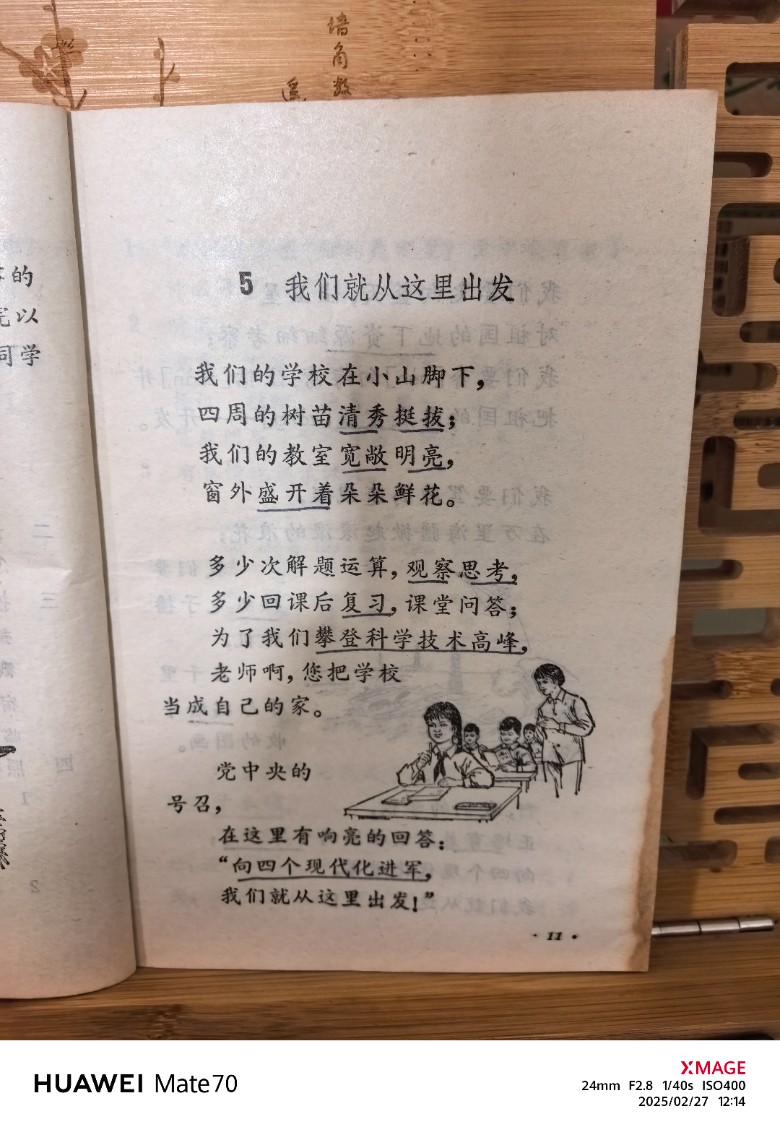 墙角数
遥
的
以
同学
5 我们就从这里出发
我们的学校在小山脚下，
四周的树苗清秀挺拔；
我们的教室宽敞明亮，
窗外盛开着朵朵鲜花。
多少次解题运算，观察思考，
多少回课后复习，课堂问答；
为了我们攀登科学技术高峰，
老师啊，您把学校
当成自己的家。
党中央的
号召，
在这里有响亮的回答：
“向四个现代化进军，
我们就从这里出发！”
· 11 ·
HUAWEI Mate70
XMAGE
24mm F2.8 1/40s ISO400
2025/02/27 12:14